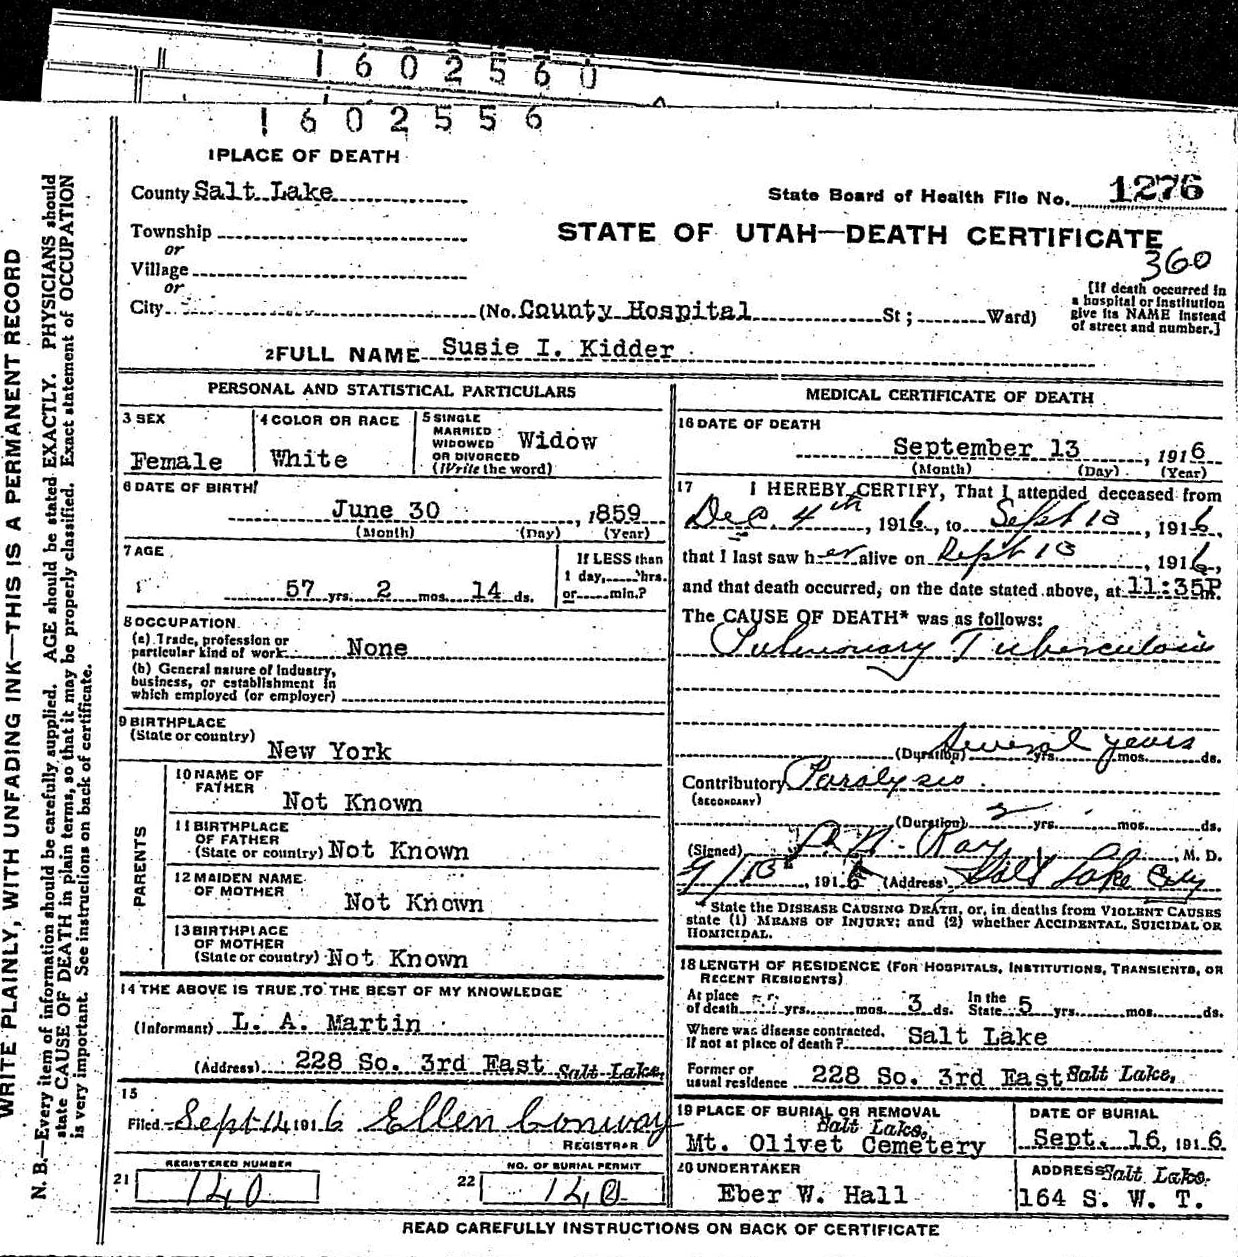 1602560
1602556
1 PLACE OF DEATH
County Salt Lake
State Board of Health File No. 1276
Township
or
STATE OF UTAH—DEATH CERTIFICATE
360
Village
or
City (No. County Hospital St; Ward)
[If death occurred in a hospital or institution give its NAME instead of street and number.]
2 FULL NAME Susie I. Kidder
PERSONAL AND STATISTICAL PARTICULARS
3 SEX
Female
4 COLOR OR RACE
White
5 SINGLE
MARRIED
WIDOWED
OR DIVORCED
(Write the word)
Widow
6 DATE OF BIRTH
June 30, 1859
(Month) (Day) (Year)
7 AGE
57 yrs. 2 mos. 14 ds.
If LESS than
1 day, hrs.
or min.?
8 OCCUPATION
(a) Trade, profession or
particular kind of work None
(b) General nature of industry,
business, or establishment in
which employed (or employer)
9 BIRTHPLACE
(State or country)
New York
PARENTS
10 NAME OF
FATHER
Not Known
11 BIRTHPLACE
OF FATHER
(State or country) Not Known
12 MAIDEN NAME
OF MOTHER
Not Known
13 BIRTHPLACE
OF MOTHER
(State or country) Not Known
14 THE ABOVE IS TRUE TO THE BEST OF MY KNOWLEDGE
(Informant) L. A. Martin
(Address) 228 So. 3rd East Salt Lake,
15
Filed Sept 14 1916 Ellen Conway
REGISTRAR
REGISTERED NUMBER
21 140
NO. OF BURIAL PERMIT
22 140
MEDICAL CERTIFICATE OF DEATH
16 DATE OF DEATH
September 13, 1916
(Month) (Day) (Year)
17 I HEREBY CERTIFY, That I attended deceased from
Dec. 4th, 1916, to Sept 13, 1916,
that I last saw her alive on Sept 13, 1916,
and that death occurred, on the date stated above, at 11:35P m.
The CAUSE OF DEATH* was as follows:
Pulmonary Tuberculosis
(Duration) Several years yrs. mos. ds.
Contributory Paralysis
(SECONDARY)
(Duration) 2 yrs. mos. ds.
(Signed) Ray, M. D.
9/15, 1916 (Address) Salt Lake City
* State the DISEASE CAUSING DEATH, or, in deaths from VIOLENT CAUSES
state (1) MEANS OF INJURY; and (2) whether ACCIDENTAL, SUICIDAL OR
HOMICIDAL.
18 LENGTH OF RESIDENCE (FOR HOSPITALS, INSTITUTIONS, TRANSIENTS, OR
RECENT RESIDENTS)
At place of death yrs. mos. 3 ds. In the State 5 yrs. mos. ds.
Where was disease contracted,
if not at place of death? Salt Lake
Former or
usual residence 228 So. 3rd East Salt Lake,
19 PLACE OF BURIAL OR REMOVAL
Salt Lake,
Mt. Olivet Cemetery
DATE OF BURIAL
Sept. 16, 1916
20 UNDERTAKER
Eber W. Hall
ADDRESS Salt Lake,
164 S. W. T.
READ CAREFULLY INSTRUCTIONS ON BACK OF CERTIFICATE
WRITE PLAINLY, WITH UNFADING INK—THIS IS A PERMANENT RECORD
N. B.—Every item of information should be carefully supplied. AGE should be stated EXACTLY. PHYSICIANS should
state CAUSE OF DEATH in plain terms, so that it may be properly classified. Exact statement of OCCUPATION
is very important. See instructions on back of certificate.